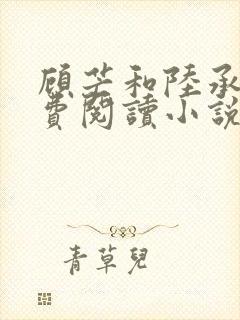 顧芒和陸承
費閱讀小說
青草兒